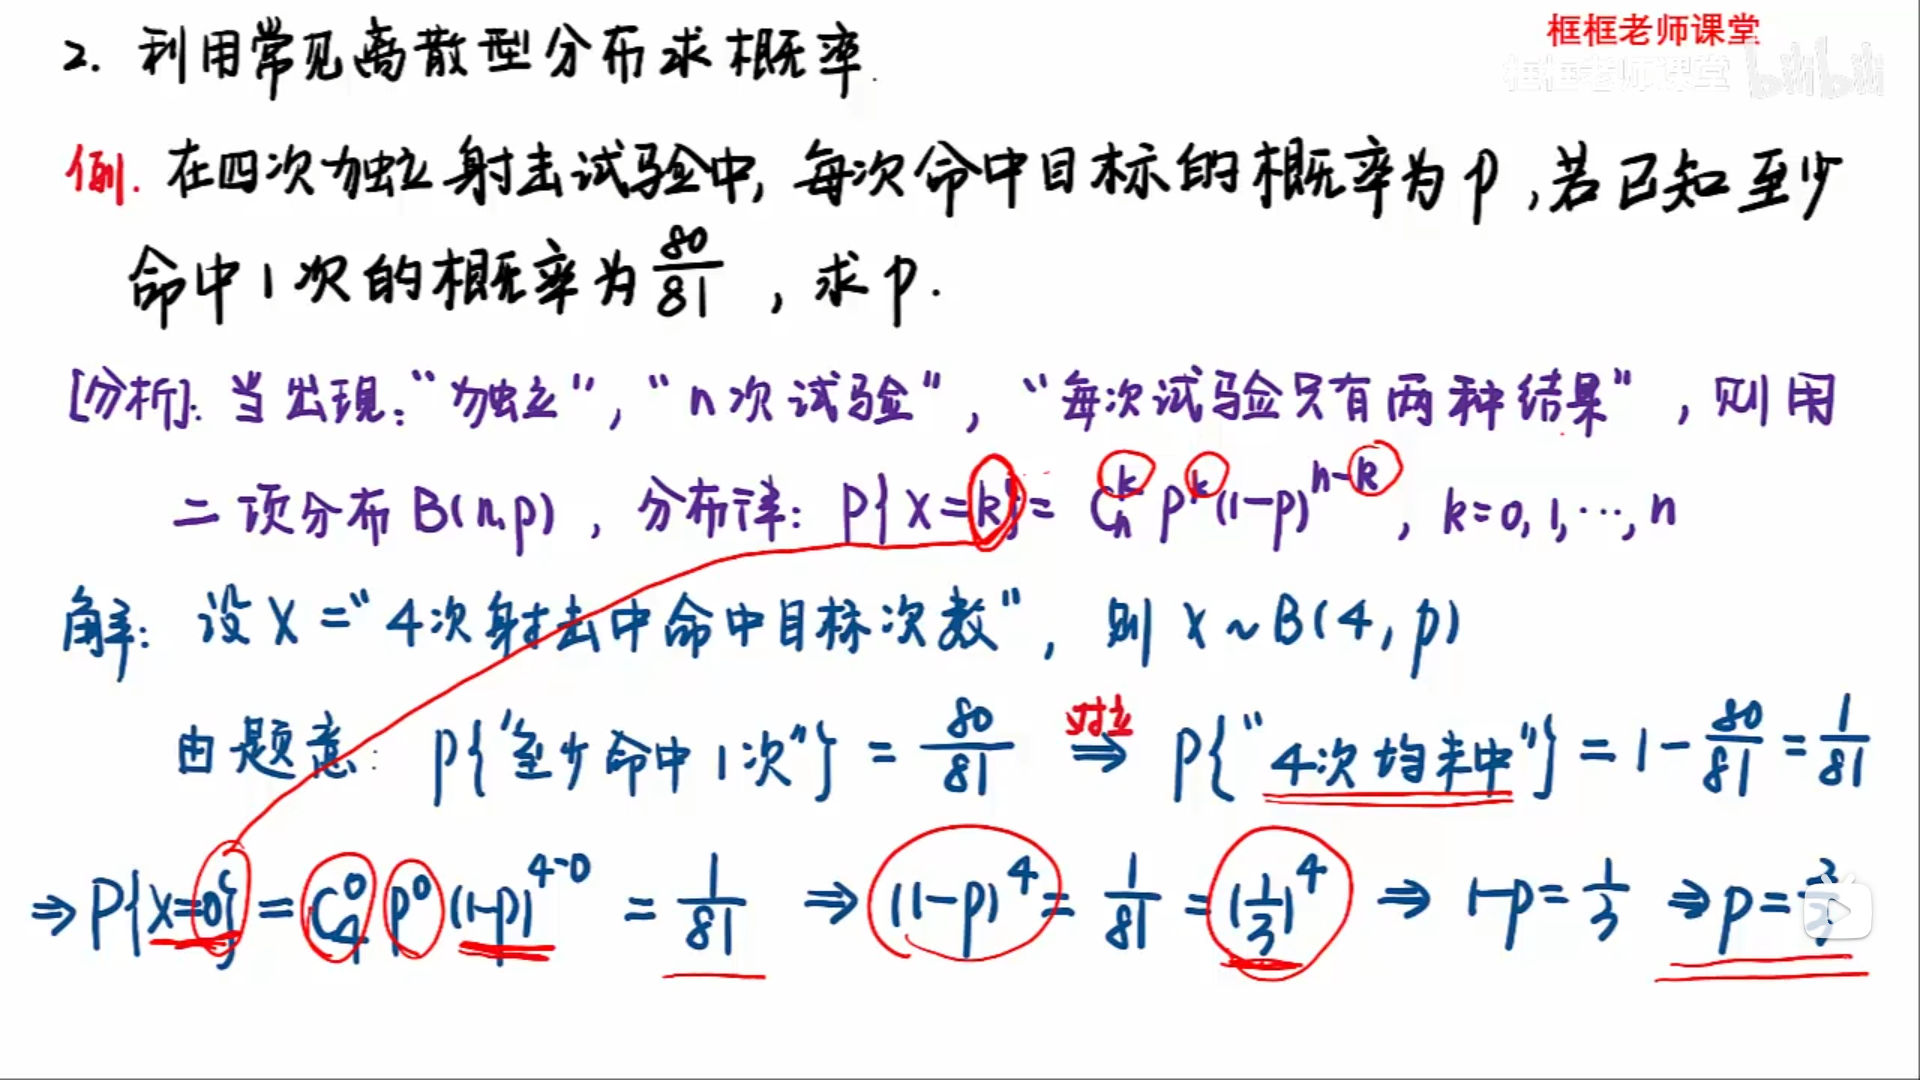 框框老师课堂
框框老师课堂 bilibili
2. 利用常见离散型分布求概率.
例. 在四次独立射击试验中, 每次命中目标的概率为 p , 若已知至少
命中 1 次的概率为 80/81 , 求 p .
[分析]: 当出现: “独立”, “n次试验”, “每次试验只有两种结果”, 则用
二项分布 B(n,p) , 分布律: P{X=k} = C_n^k p^k (1-p)^{n-k} , k=0,1,…,n
解: 设 X = “4次射击中命中目标次数”, 则 X ~ B(4, p)
由题意: P{“至少命中1次”} = 80/81 对立 ⇒ P{“4次均未中”} = 1 - 80/81 = 1/81
⇒ P{X=0} = C_4^0 p^0 (1-p)^{4-0} = 1/81 ⇒ (1-p)^4 = 1/81 = (1/3)^4 ⇒ 1-p = 1/3 ⇒ p =